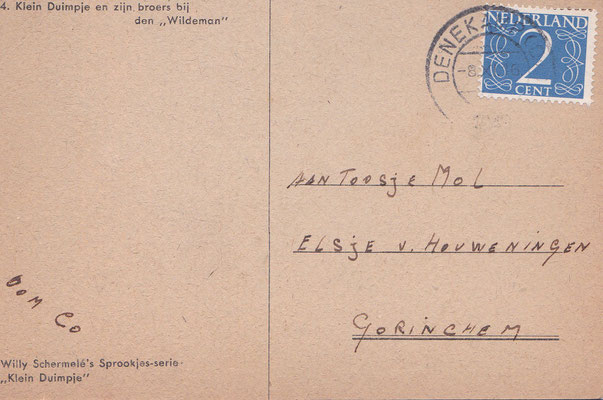 4. Klein Duimpje en zijn broers bij
den „Wildeman"
NEDERLAND
2
CENT
AAN Toosje Mol
ELSje v. HOUWENINGEN
GORINCHEM
OOM CO
Willy Schermelé's Sprookjes-serie
„Klein Duimpje"